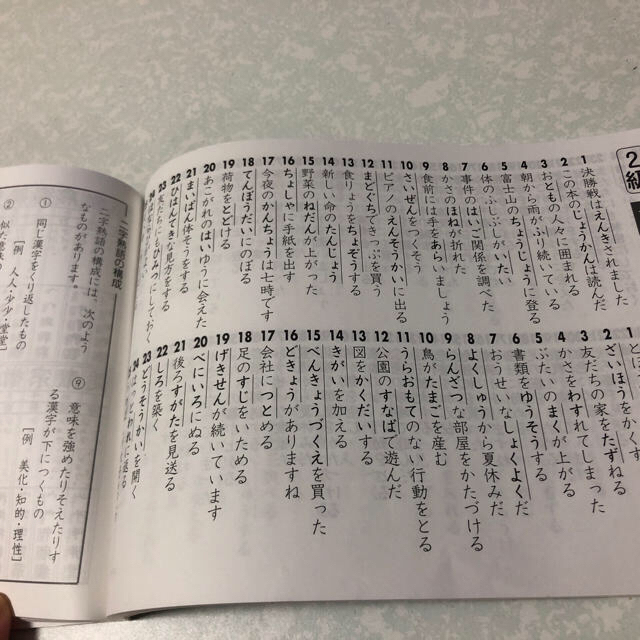 2級
1 決勝戦はえんきされました
2 この本のじょうかんは読んだ
3 おともの人々に囲まれる
4 朝から雨がふり続いている
5 富士山のちょうじょうに登る
6 体のふしぶしがいたい
7 事件のはいご関係を調べた
8 かさのほねが折れた
9 食前には手をあらいましょう
10 さいぜんをつくそう
11 ピアノのえんそうかいに出る
12 まどぐちできっぷを買う
13 食りょうをちょぞうする
14 新しい命のたんじょう
15 野菜のねだんが上がった
16 ちょしゃに手紙を出す
17 今夜のかんちょうは十時です
18 てんぼうだいにのぼる
19 荷物をとどける
20 あこがれのはいゆうに会えた
21 まいばん体そうをする
22 ひはんてきな見方をする
23 友だちにもひみつにしておく
2 ざいほうをかくす
3 友だちの家をたずねる
4 かさをわすれてしまった
5 ぶたいのまくが上がる
6 書類をゆうそうする
7 おうせいなしょくよくだ
8 よくしゅうから夏休みだ
9 らんざつな部屋をかたづける
10 鳥がたまごを産む
11 うらおもてのない行動をとる
12 公園のすなばで遊んだ
13 図をかくだいする
14 きがいを加える
15 べんきょうづくえを買った
16 どきょうがありますね
17 会社につとめる
18 足のすじをいためる
19 げきせんが続いています
20 べにいろにぬる
21 後ろすがたを見送る
22 しろを築く
23 どうそうかいを開く
24
二字熟語の構成
二字熟語の構成には、次のよう
なものがあります。
① 同じ漢字をくり返したもの
［例 人人・少少・堂堂］
② 似た意味の
⑨ 意味を強めたりそえたりす
る漢字が下につくもの
［例 美化・知的・理性］